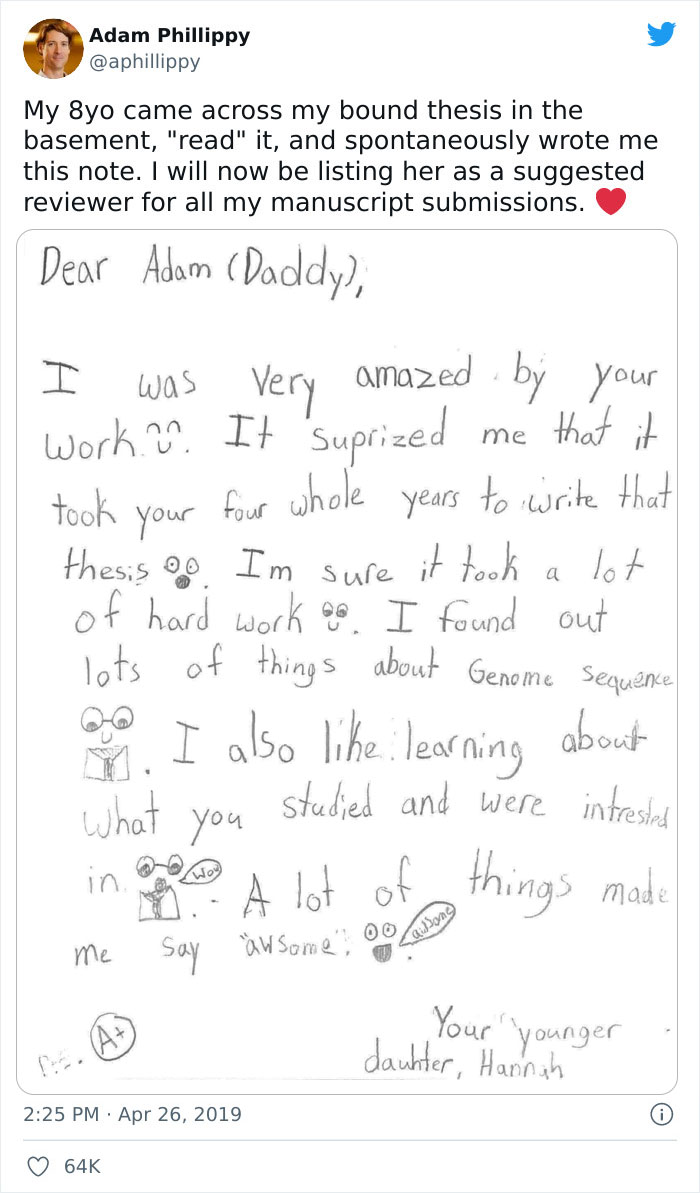 Adam Phillippy
@aphillippy
My 8yo came across my bound thesis in the
basement, "read" it, and spontaneously wrote me
this note. I will now be listing her as a suggested
reviewer for all my manuscript submissions. ❤️
Dear Adam (Daddy),
I was very amazed by your
work. It suprized me that it
took your four whole years to write that
thesis. Im sure it took a lot
of hard work. I found out
lots of things about Genome sequence
. I also like learning about
what you studied and were intrested
in. Wow A lot of things made
me say "awsome". awsome
A+
Your younger
dauhter, Hannah
2:25 PM · Apr 26, 2019
64K